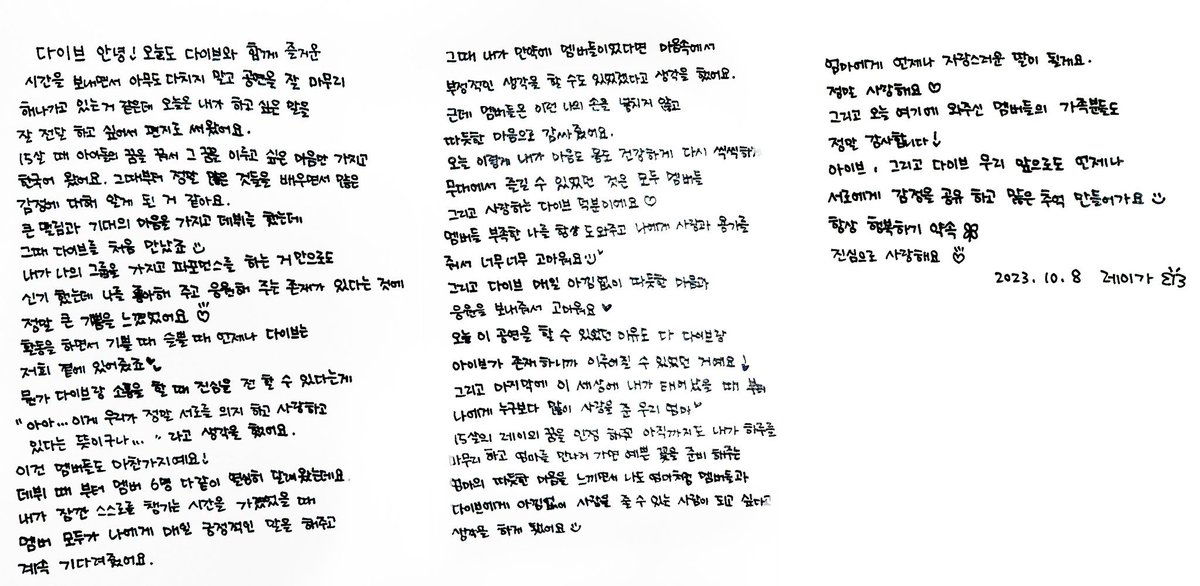 다이브 안녕! 오늘도 다이브와 함께 즐거운
시간을 보내면서 아무도 다치지 말고 공연을 잘 마무리
해나가고 있는거 같은데 오늘은 내가 하고 싶은 말을
잘 전달 하고 싶어서 편지로 써왔어요.
15살 때 아이돌의 꿈을 꿔서 그 꿈을 이루고 싶은 마음만 가지고
한국에 왔어요. 그때부터 정말 많은 것들을 배우면서 많은
감정에 대해 알게 된 거 같아요.
큰 떨림과 기대의 마음을 가지고 데뷔를 했는데
그때 다이브를 처음 만났죠
내가 나의 그룹을 가지고 퍼포먼스를 하는 거 만으로도
신기 했는데 나를 좋아해 주고 응원해 주는 존재가 있다는 것에
정말 큰 기쁨을 느꼈었어요 ♡
활동을 하면서 기쁠 때 슬플 때 언제나 다이브는
저희 곁에 있어줬죠 ♥
뭔가 다이브랑 소통을 할 때 진심을 전 할 수 있다는게
"아아... 이게 우리가 정말 서로를 의지 하고 사랑하고
있다는 뜻이구나..." 라고 생각을 했어요.
이건 멤버들도 마찬가지예요!
데뷔 때 부터 멤버 6명 다같이 열심히 달려왔는데요.
내가 잠깐 스스로를 챙기는 시간을 가졌었을 때
멤버 모두가 나에게 매일 긍정적인 말을 해주고
계속 기다려줬어요.
그때 내가 만약에 멤버들이었다면 마음속에서
부정적인 생각을 할 수도 있었겠다고 생각을 했어요.
근데 멤버들은 이런 나의 손을 놓치지 않고
따뜻한 마음으로 감싸줬어요.
오늘 이렇게 내가 마음도 몸도 건강하게 다시 씩씩하게
무대에서 즐길 수 있었던 것은 모두 멤버들
그리고 사랑하는 다이브 덕분이에요 ♡
멤버들 부족한 나를 항상 도와주고 나에게 사랑과 용기를
줘서 너무너무 고마워요
그리고 다이브 매일 아낌없이 따뜻한 마음과
응원을 보내줘서 고마워요 ♥
오늘 이 공연을 할 수 있었던 이유도 다 다이브랑
아이브가 존재하니까 이루어질 수 있었던 거예요!
그리고 마지막에 이 세상에 내가 태어났을 때 부터
나에게 누구보다 많이 사랑을 준 우리 엄마
15살의 레이의 꿈을 인정 해주고 아직까지도 내가 하루를
마무리 하고 엄마를 만나러 가면 예쁜 꽃을 준비 해주는
엄마의 따뜻한 마음을 느끼면서 나도 엄마처럼 멤버들과
다이브에게 아낌없이 사랑을 줄 수 있는 사람이 되고 싶다고
생각을 하게 됐어요
엄마에게 언제나 자랑스러운 딸이 될게요.
정말 사랑해요 ♡
그리고 오늘 여기에 와주신 멤버들의 가족분들도
정말 감사합니다!
아이브, 그리고 다이브 우리 앞으로도 언제나
서로에게 감정을 공유 하고 많은 추억 만들어가요
항상 행복하기 약속
진심으로 사랑해요
2023.10.8 레이가